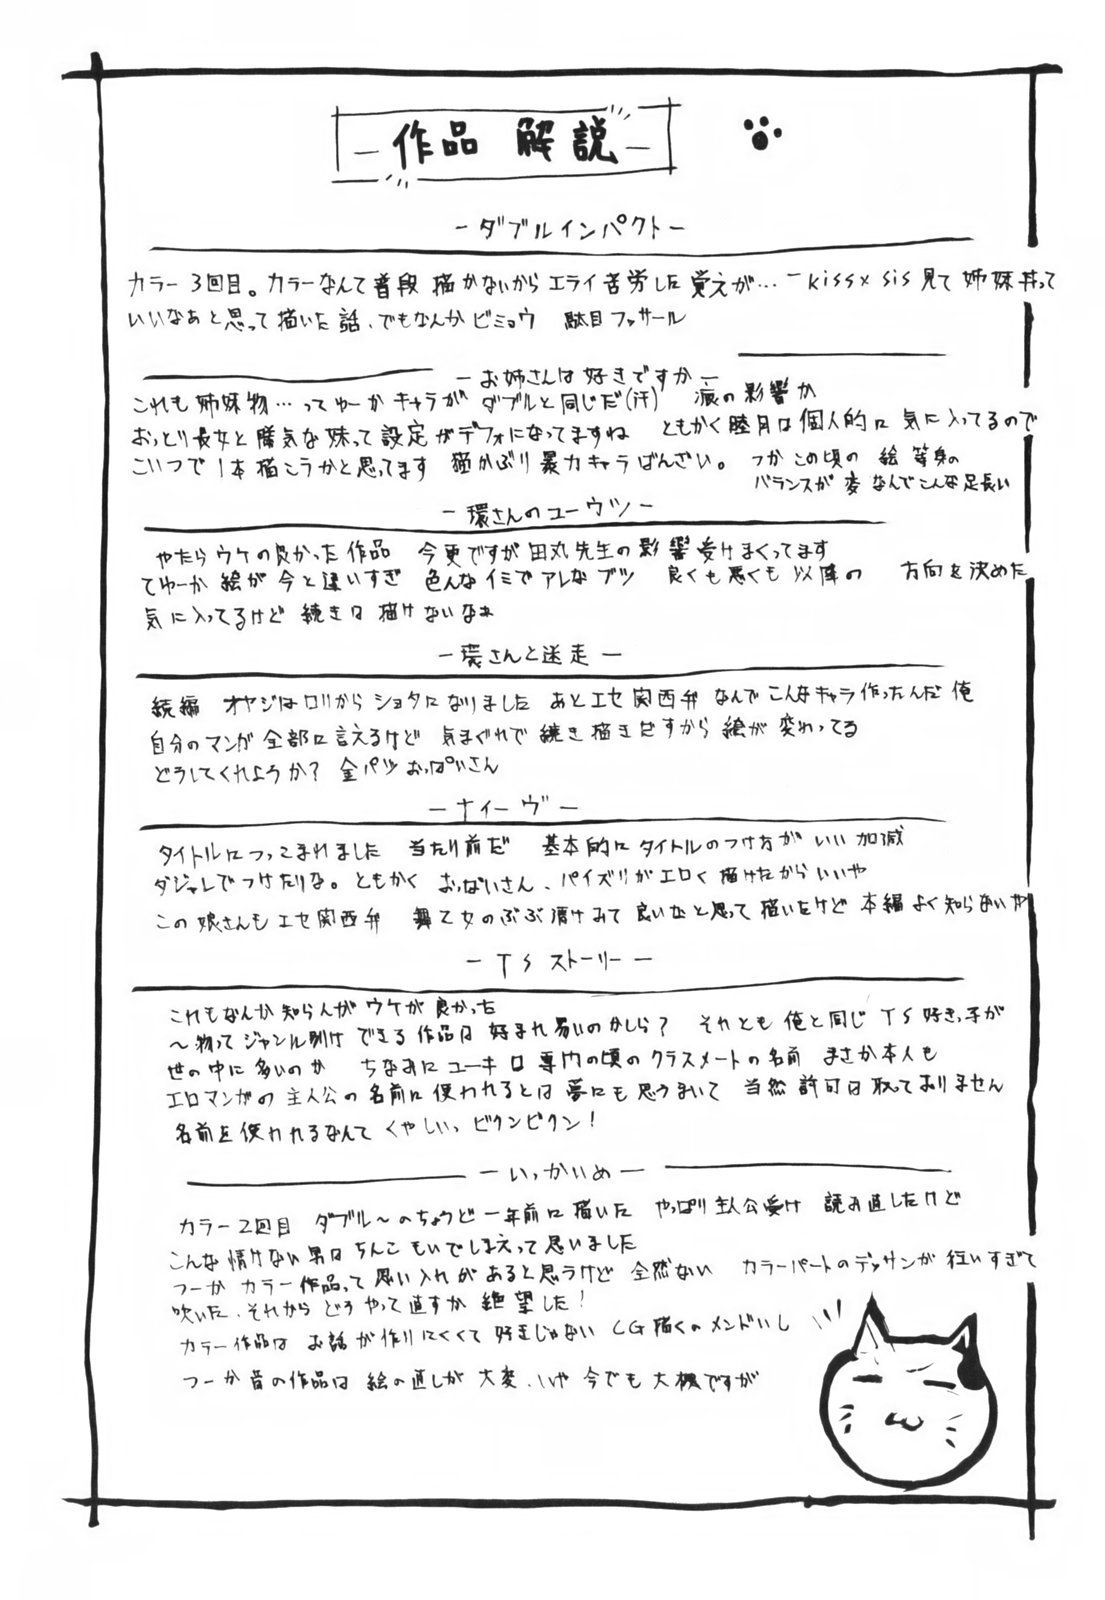 作品 解説
ーダブルインパクトー
カラー3回目。カラーなんて普段描かないからエライ苦労した覚えが… kiss×sis見て姉妹丼って
いいなぁと思って描いた話、でもなんかビミョウ 駄目ファサール
ーお姉さんは好きですかー
これも姉妹物…ってゆーかキャラがダブルと同じだ(汗) の影響か
おっとり長女と勝気な妹って設定がデフォになってますね ともかく睦月は個人的に気に入ってるので
こいつで1本描こうかと思ってます 猫かぶり暴力キャラばんざい。 つかこの頃の絵等身の
バランスが変 なんでこんな足長い
ー環さんのユーウツー
やたらウケの良かった作品 今更ですが田丸先生の影響受けまくってます
てゆーか絵が今と違いすぎ 色んなイミでアレなブツ 良くも悪くも以降の 方向を決めた
気に入ってるけど続きは描けないなぁ
ー環さんと迷走ー
続編 オヤジはロリからショタになりました あとエセ関西弁 なんでこんなキャラ作ったんだ俺
自分のマンガ全部に言えるけど 気まぐれで続き描きだすから絵が変わってる
どうしてくれようか? 金パツおっぱいさん
ーナイーヴー
タイトルにつっこまれました 当たり前だ 基本的にタイトルのつけ方がいい加減
ダジャレでつけたりな。ともかくおっぱいさん、パイズリがエロく描けたからいいや
この娘さんもエセ関西弁 舞乙女のぶぶ漬けみて良いなと思って描いたけど本編よく知らないや
ーTSストーリーー
これもなんか知らんがウケが良かった
～物ってジャンル別けできる作品は好まれ易いのかしら? それとも俺と同じTS好きっ子が
世の中に多いのか ちなみにユーキは専門の頃のクラスメートの名前 まさか本人も
エロマンガの主人公の名前に使われるとは夢にも思うまいて 当然許可は取っておりません
名前を使われるなんてくやしいっビクンビクン!
ーいっかいめー
カラー2回目 ダブル～のちょうど一年前に描いた やっぱり主人公受け 読み直したけど
こんな情けない男はちんこもいでしまえって思いました
つーかカラー作品って思い入れがあると思うけど全然ない カラーパートのデッサンが狂いすぎて
吹いた、それからどうやって直すか絶望した!
カラー作品はお話が作りにくくて好きじゃない CG描くのメンドいし
つーか昔の作品は絵の直しが大変、いや今でも大概ですが